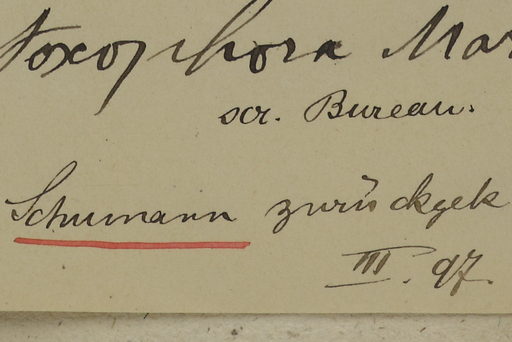 toxophora Mar
scr. Bureau.
Schumann zurückgek
III. 97.